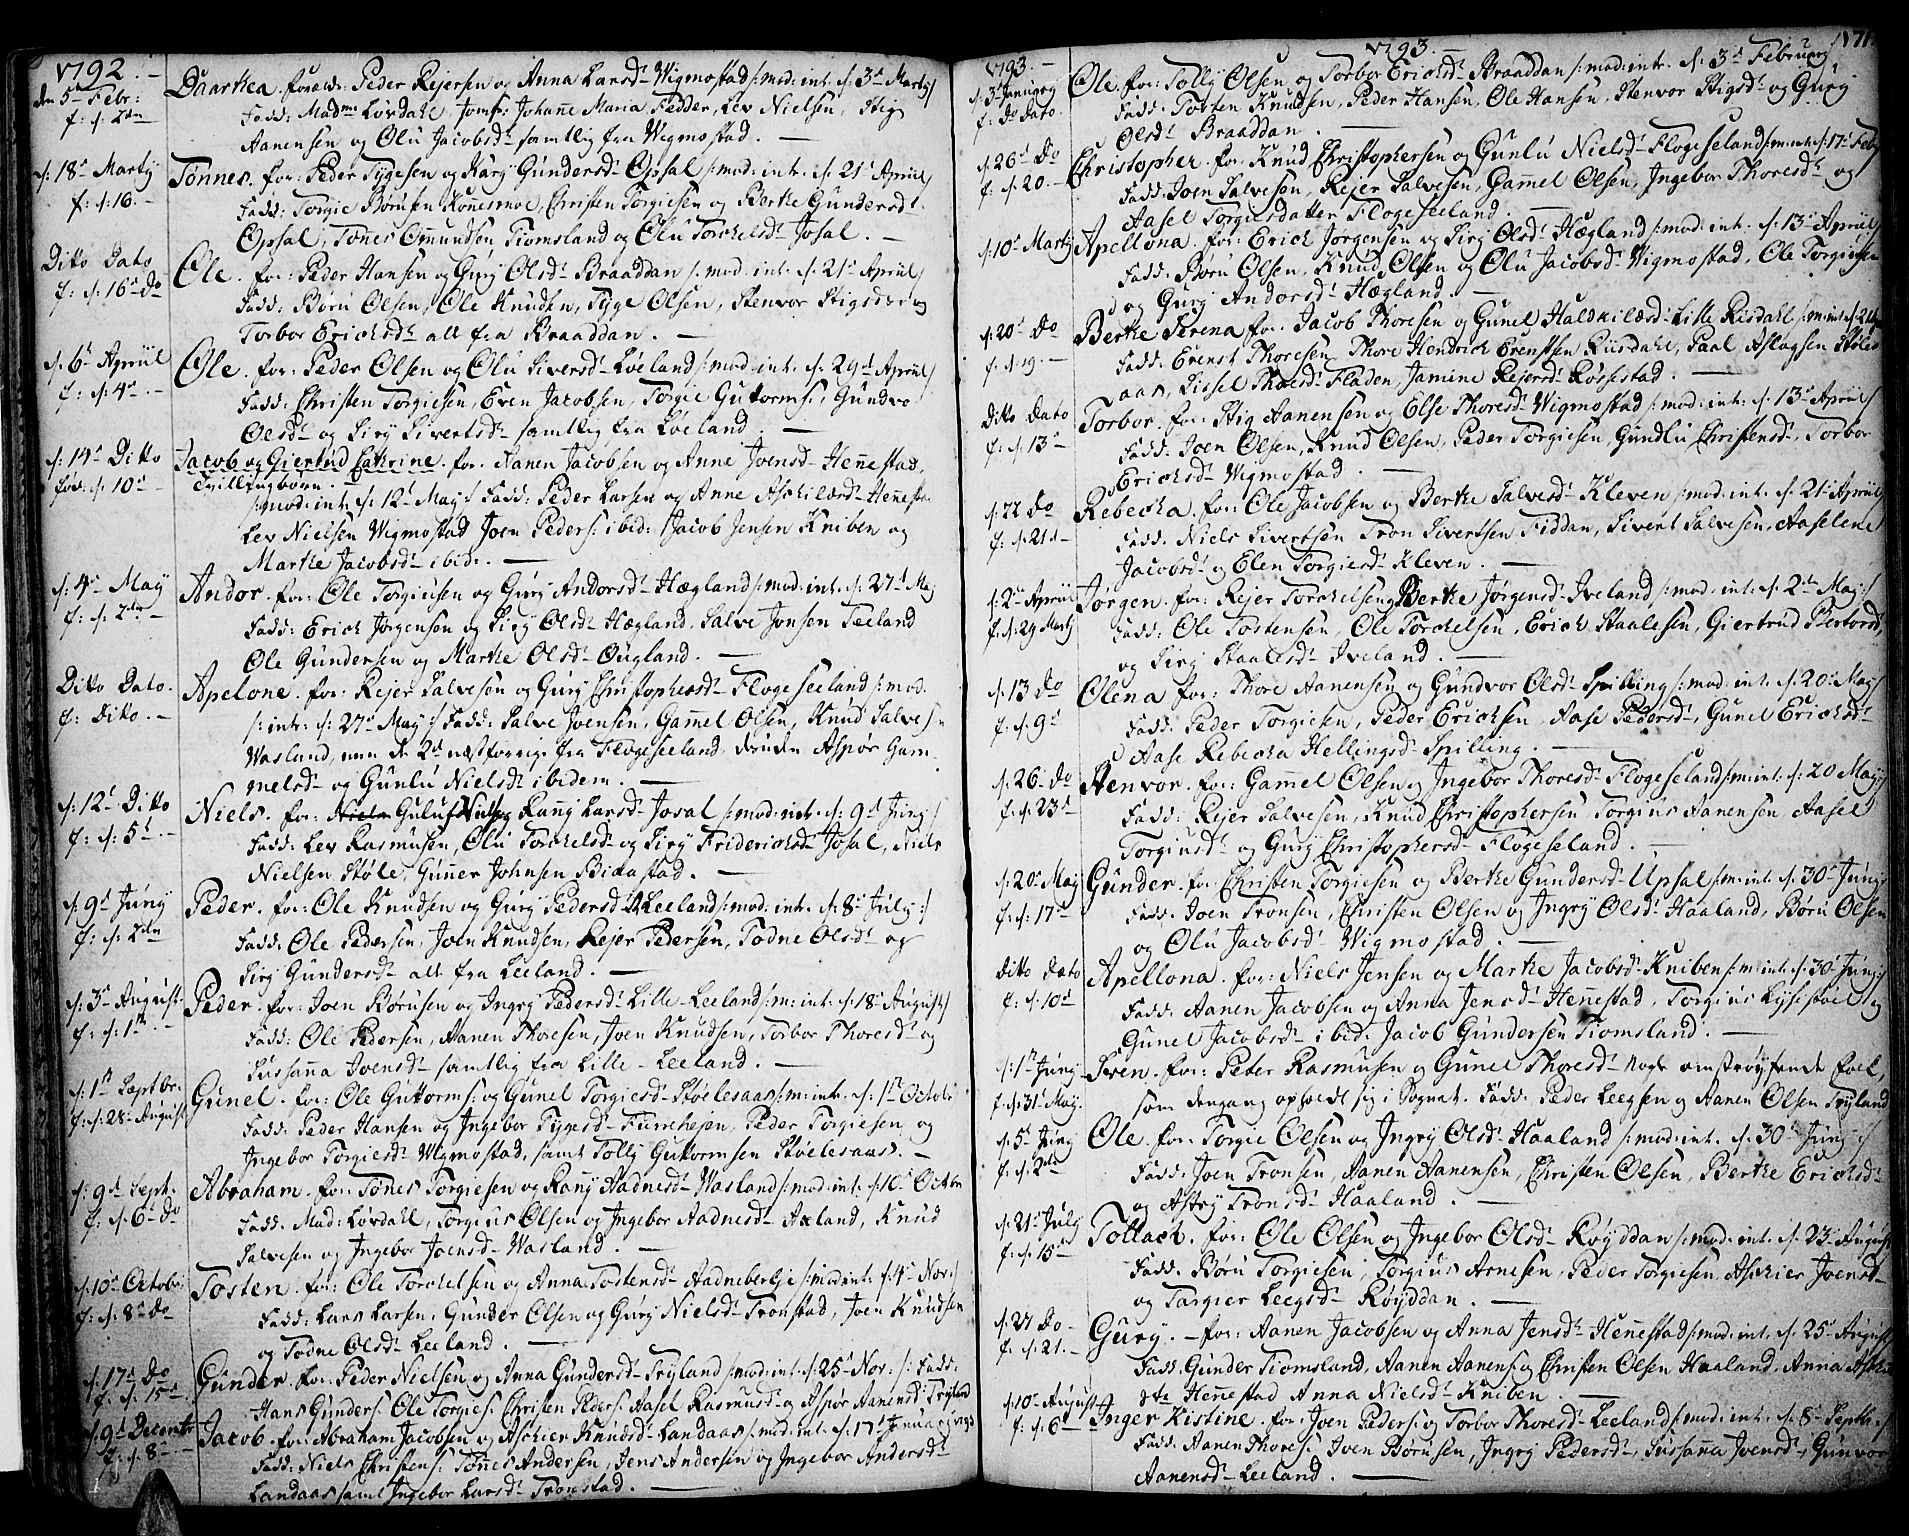 1792.
den 5te Febr: Daarthea. forældr: Peder Rejersen og Anna Larsd: Wigmostad /: mod: int: d: 3d Martij /
f: d: 2den Fadd: Madme Løvdahl, Jomfr: Johanne Maria Fedder, Lev Nielsen, Stig
Aanensen og Olu Jacobsd: samtlig fra Wigmostad.
d: 18d Martij Tønnes. for: Peder Tygesen og Karj Gundersd: Opsal /: mod: int: d: 21d Apriil /
f: d: 16. Fadd: Torgie Børusen Konesmoe, Christen Torgiesen og Berthe Gundersd:
Opsal, Tønes Omundsen Tiomsland og Olu Torchelsd: Josal.
Ditto Dato Ole. for: Peder Hansen og Gurj Olsd: Braaddan /: mod: int: d: 21d Apriil /
f: d: 16d do Fadd: Børu Olsen, Ole Knudsen, Tyge Olsen, Stenvor Stigsdr og
Torbor Erichsd: alt fra Braaddan.
d: 6d Apriil Ole. for: Peder Olsen og Olu Siversd: Løeland /: mod: int: d: 29d Apriil /
f: d: 4d Fadd: Christen Torgiesen, Even Jacobsen, Torgie Gutorms:, Gundvo
Olsd: og Sirj Sivertsd: samtlig fra Løeland.
d: 14d Ditto Jacob og Giertrud Cathrine. for: Aanen Jacobsen og Anne Joensd: Hennestad,
fød: d: 10d Tvillingbørn. /: mod: int: d: 12d Maj / Fadd: Peder Larsen og Anne Aschildsd: Henesta
Lev Nielsen Wigmostad Joen Peders: ibid: Jacob Jensen Kniben og
Marthe Jacobsd: ibid:
d: 4d May Andor. for: Ole Torgiusen og Gurj Andorsd: Hægland /: mod: int: d: 27d Maj
f: d: 2den Fadd: Erich Jørgensen og Sirj Olsd: Hægland, Salve Jonsen Teeland
Ole Gundersen og Marthe Olsd: Ougland.
Ditto Dato. Apelone. for: Rejer Salvesen og Gurj Christophersd: Flogeseeland /: mod.
f: Ditto. /: int: d: 27d May:/ Fadd: Salve Joensen, Gammel Olsen, Knud Salves:
Wasland, men de 2d næstforrige fra Flogeseeland, desuden Aspør Gam-
melsd: og Gunlu Nielsd: ibidem.
d: 12d Ditto Niels. for: Guluf Nielsen og Rannj Larsd: Josal /: mod: int: d: 9d Junj /
f: d: 5d Fadd: Lev Rasmusen, Olu Torchelsd: og Sirj Friderichsd: Josal, Niels
Nielsen Støle, Gunner Johnsen Bidastad.
d: 9d Junij Peder. for: Ole Knudsen og Gurj Pedersd: Leeland /: mod: int: d: 8d Julj :/
f: d: 2den Fadd: Ole Pedersen, Joen Knudsen, Rejer Pedersen, Todne Olsd: og
Sirj Gundersd: alt fra Leeland.
d: 3d August Peder. for: Joen Børusen og Ingrj Pedersd: Lille-Leeland /: m: int: d: 18d August /
f: d: 1ste Fadd: Ole Pedersen, Aanen Thoresen, Joen Knudsen, Torbor Thoresd: og
Sussanna Joensd: samtlig fra Lille-Leeland.
d: 1ste Septbr: Gunel. for: Ole Guttorms: og Gunnel Torgiesd: Støelesaas /: m: int: d: 1ste Octobr
f: d: 28d August Fadd: Peder Hansen og Ingebor Tygesd: Furrehejen, Peder Torgiesen og
Ingebor Torgiesd: Wigmostad, samt Tollj Gutormsen Støelesaas.
d: 9d Sept. Abraham. for: Tønes Torgiesen og Ranj Aadnesd: Wasland /: mod: int: d: 10d Octobr
f: d: 6d do Fadd: Mad: Løvdahl, Torgius Olsen og Ingebor Aadnesd: Axland, Knud
Salvesen og Ingebor Joensd: Wasland.
d: 10d Octobr: Tosten. for: Ole Torchelsen og Anna Tostensd: Aadneberje /: mod: int: d: 4d Nov: /
f: d: 8d do Fadd: Lars Larsen, Gunder Olsen og Gurj Nielsd: Tronstad, Joen Knudsen
og Todne Olsd: Leeland.
d: 17d Do Gunder. for: Peder Nielsen og Anna Gundersd: Trÿland /: mod: int: d: 25d Nov. /: Fadd:
f: d: 15d Hans Gunders: Ole Torgies: Christen Peders: Aasel Rasmusd: og Aspør Aanensd: Trÿland
d: 9d Decembr Jacob. for: Abraham Jacobsen og Aschier Knudsd: Landaas /: mod: int: d: 17d Januarij 1793
f: d: 8 Fadd: Niels Christens: Tønnes Andersen, Jens Andersen og Ingebor Andersd:
Landaas samt Ingebor Larsd: Tronstad.
1793. 171
1793.
d: 3d Januarij Ole. for: Tollj Olsen og Torbor Erichsd: Braaddan /: mod: int: d: 3d Februarij
f: Do Dato. Fadd: Tosten Knudsen, Peder Hansen, Ole Hansen, Stenvor Stigsd: og Gurj
Olsd: Braaddan.
d: 26d Do Christopher. for: Knud Christophersen og Gunlu Nielsd: Flogeseland /: m: int: d: 17d Feb
f: d: 20. Fadd: Joen Salvesen, Rejer Salvesen, Gammel Olsen, Ingebor Thoresd: og
Aasel Torgiusdatter Flogeseeland.
d: 10d Martij Apellona. for: Erich Jørgensen og Sirj Olsd: Hægland /: mod: int: d: 13d Apriil /
Fadd: Børu Olsen, Knud Olsen og Olu Jacobsd: Wigmostad, Ole Torgiusen
og Gurj Andorsd: Hægland.
d: 20d Do Berthe Serena for: Jacob Thoresen og Gunel Haldvildsd: Lille Riisdahl /: m: int: d: 21
f: d: 19. Fadd: Erenst Thoresen, Thore Hendrich Erenstsen Riisdahl, Paal Aslagsen Støles
aas, Sissel Thoesd: Fladen, Jamine Rejersd: Rossestad.
Ditto Dato Torbor. for: Stig Aanensen og Else Thoresd: Wigmostad /: mod: int: d: 13d Apriil /
f: d: 13d Fadd: Joen Olsen, Knud Olsen, Peder Torgiesen, Gundlu Christensd:, Torbor
Erichsd: Wigmostad.
d: 22 do Rebecka. for: Ole Jacobsen og Berthe Salvesd: Kleven /: mod: int: d: 21d Apriil /
f: d: 21d Fadd: Niels Sivertsen Tron Sivertsen Fiddan, Sivert Salvesen, Aaselene
Jacobsd: og Elen Torgiesd: Kleven.
d: 2d Apriil Jørgen. for: Rejer Torchelsen og Berthe Jørgensd: Iveland /: mod: int: d: 2den Maj :/
f: d: 29 Martj Fadd: Ole Tostensen, Ole Torchelsen, Erich Staalesen, Giertrud Bertorsd:
og Sirj Staalesd: Iveland.
d: 13 do Olena for: Thore Aanensen og Gundvor Olsd: Spilling /: mod: int: d: 20d Maj /
f: d: 9d Fadd: Peder Torgiesen, Peder Erichsen, Aase Pedersd:, Gunel Erichsd:
Aase Rebecka Hellingsd: Spilling.
d: 26. do Stenvor. for: Gammel Olsen og Ingebor Thoresd: Flogeseland /: m: int: d: 20 Maj
f: d: 23d Fadd: Rejer Salvesen, Knud Christophersen Torgius Aanensen, Aasel
Torgiusd: og Gurj Christophersd: Flogeseland.
d: 20d Maj Gunder. for: Christen Torgiesen og Berthe Gundersd: Upsal /: m: int: d: 30d Junj
f: d: 17d Fadd: Joen Tronsen, Christen Olsen og Ingrj Olsd: Haaland, Børu Olsen
og Olu Jacobsd: Wigmostad.
ditto dato Apellona. for: Niels Jensen og Marthe Jacobsd: Kniben /: m: int: d: 30d Junj :/
f: d: 10d Fadd: Aanen Jacobsen og Anna Jensd: Hennestad, Torgius Lÿsestøel og
Gunel Jacobsd: ibid: Jacob Gundersen Tiomsland.
d: 1ste Junj Sven. for: Peter Rasmusen og Gunel Thoresd: nogle omstrøyfende folk,
f: d: 31d Maj. som dengang opholdt sig i Sognet. Fadd: Peder Leegsen og Aanen Olsen Trÿland
d: 5d Junj Ole. for: Torgie Olsen og Ingrj Olsd: Haaland /: mod: int: d: 30d Junj :/
f: d: 2den Fadd: Joen Tronsen, Aanen Aanensen, Christen Olsen, Berthe Erichsd:
og Astrj Tronsd: Haaland.
d: 21d Julj Tollach. for: Ole Olsen og Ingebor Olsd: Røyddan /: mod: int: d: 23d August
f: d: 15d Fadd: Børu Torgiesen, Torgius Arnesen, Peder Torgiesen, Aschier Joensd:
og Targier Leegsd: Røyddan.
d: 27 do Gurj. for: Aanen Jacobsen og Anna Jensd: Hennestad /: mod: int: d: 25d August
f: d: 21. Fadd: Gunder Tiomsland, Aanen Aanens: og Christen Olsen Haaland, Anna
Hennestad Anna Nielsd: Kniben.
d: 10d August Inger Kistine. for: Joen Peders: og Torbor Thoresd: Leeland /: mod: int: d: 8d Septbr: /
f: d: 6 Fadd: Aanen Thores: Joen Børusen, Ingrj Pedersd:, Sussanna Joensd:, Gunvor
Aanensd: Leeland.